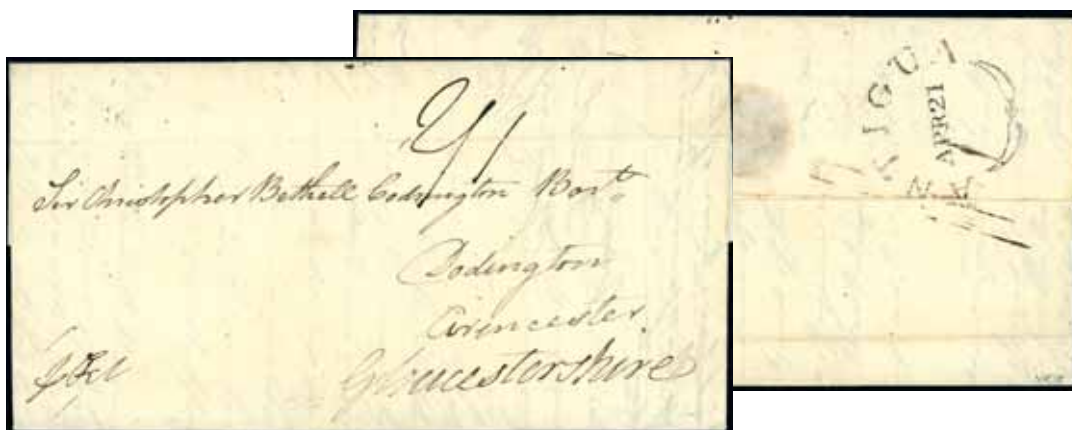 Sir Christopher Bethell Codrington Bart.
Dodington
Cirencester
Gloucestershire
ANTIGUA
APR 21